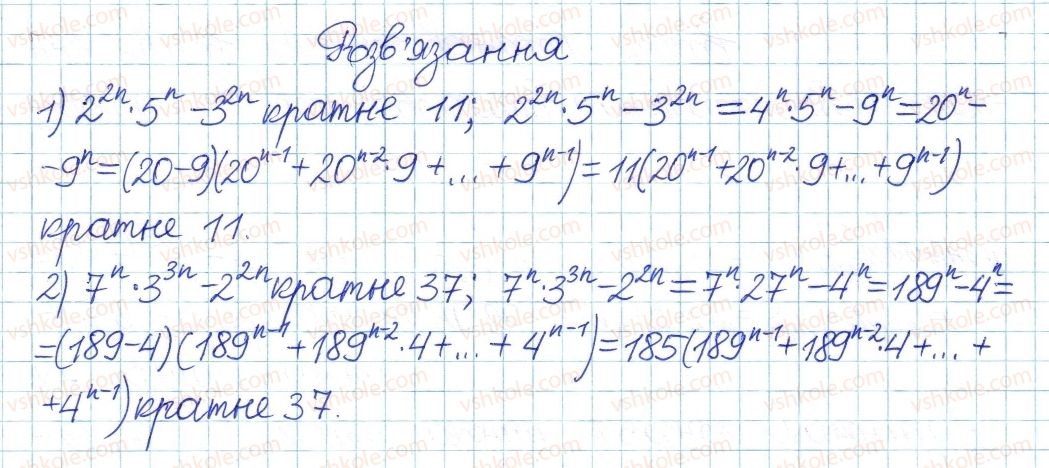 Розв'язання
1) 2^{2n}·5^n − 3^{2n} кратне 11; 2^{2n}·5^n − 3^{2n} = 4^n·5^n − 9^n = 20^n −
− 9^n = (20−9)(20^{n−1} + 20^{n−2}·9 + ... + 9^{n−1}) = 11(20^{n−1} + 20^{n−2}·9 + ... + 9^{n−1})
кратне 11.
2) 7^n·3^{3n} − 2^{2n} кратне 37; 7^n·3^{3n} − 2^{2n} = 7^n·27^n − 4^n = 189^n − 4^n =
= (189−4)(189^{n−1} + 189^{n−2}·4 + ... + 4^{n−1}) = 185(189^{n−1} + 189^{n−2}·4 + ... +
+ 4^{n−1}) кратне 37.